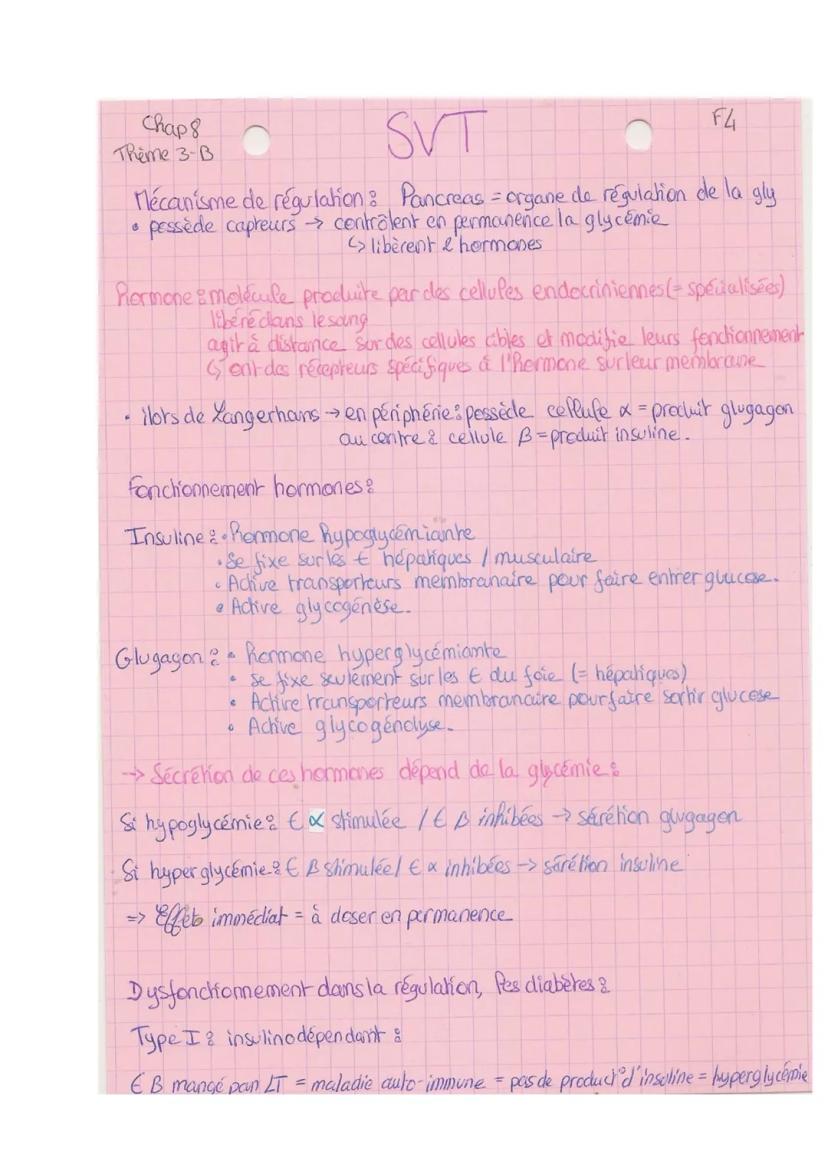 Chap 8
Thème 3-B
SVT
F4
Mécanisme de régulation : Pancreas = organe de régulation de la gly
• possède capteurs → contrôlent en permanence la glycémie
↳ libèrent 2 hormones
Hormone : molécule produite par des cellules endocriniennes (= spécialisées)
libéré dans le sang
agit à distance sur des cellules cibles et modifie leurs fonctionnement
↳ ont des récepteurs spécifiques à l'hormone sur leur membrane
• ilors de Langerhans → en périphérie : possède cellule α = produit glugagon
au centre : cellule β = produit insuline.
Fonctionnement hormones :
Insuline : • Hormone hypoglycémiante
• Se fixe sur les € hépatiques / musculaire
• Active transporteurs membranaire pour faire entrer glucose.
• Active glycogénèse.
Glugagon : • Hormone hyperglycémiante
• se fixe seulement sur les € du foie (= hépatiques)
• Active transporteurs membranaire pour faire sortir glucose
• Active glycogénolyse.
→ Sécrétion de ces hormones dépend de la glycémie :
Si hypoglycémie : € α stimulée / € β inhibées → sérétion glugagon
Si hyperglycémie : € β stimulée / € α inhibées → sérétion insuline
=> Effet immédiat = à doser en permanence
Dysfonctionnement dans la régulation, les diabètes :
Type I : insulinodépendant :
€ B mangé par LT = maladie auto-immune = pas de product° d'insuline = hyperglycémie